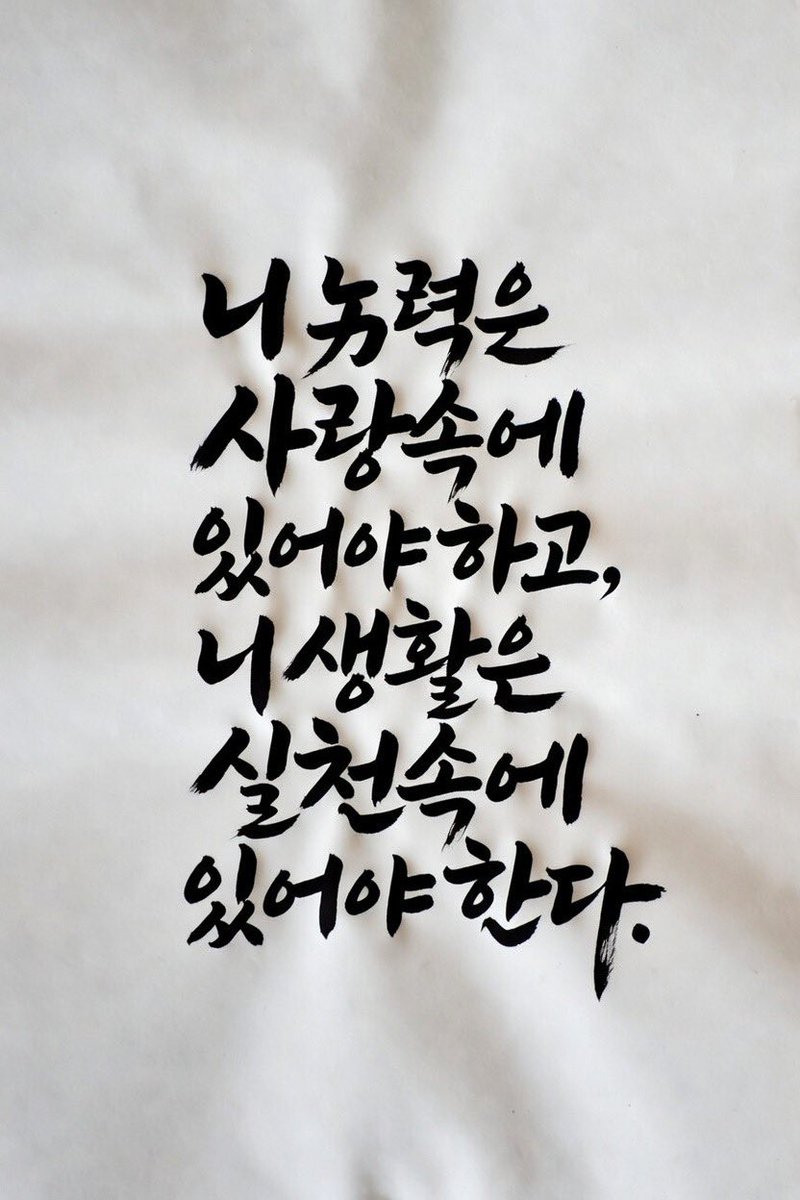 니 노력은
사랑속에
있어야 하고,
니 생활은
실천속에
있어야 한다.